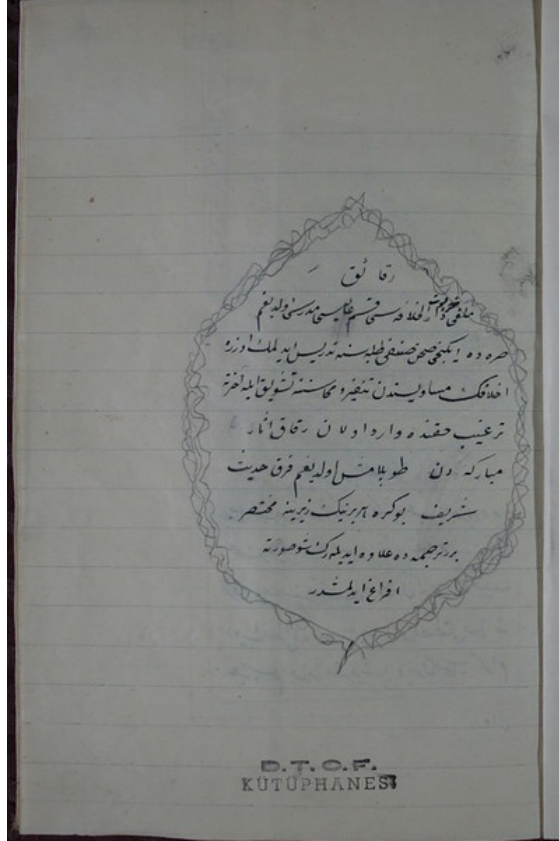 رقائق
ملغى دارالخلافه سى قسم عاليسى مدرسى اولديغم
صره ده ايكنجى صحن صنفى طلبه سنه تدريس ايدلمك اوزره
اخلاقك مساويسندن تنفير و محاسننه تشويق ايله آخرته
ترغيب حقنده وارد اولان رقاق آثار
مباركه دن طوپلامش اولديغم قرق حديث
شريف بوكره هربرينك زيرينه مختصر
بر ترجمه ده علاوه ايديله رك شو صورته
افراغ ايدلمشدر
D.T.C.F.
KÜTÜPHANESİ